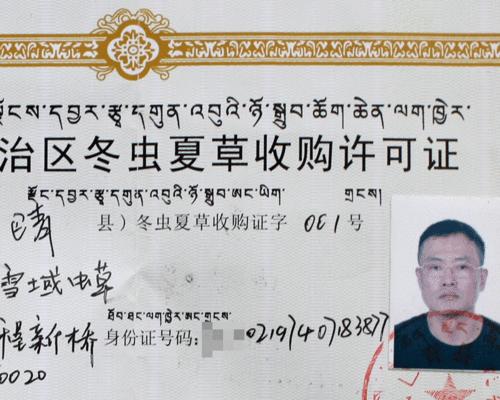 རྫོངས་དབྱར་རྩྭ་དགུན་འབུའི་ཉོ་སྒྲུབ་ཆོག་ཆེན་ལག་ཁྱེར་
治区冬虫夏草收购许可证
རྫོང་དབྱར་རྩྭ་དགུན་འབུའི་ཉོ་སྒྲུབ་ཨང་ཡིག གྲངས།
巴青 县）冬虫夏草收购证字 001 号
雪域虫草
ཐོབ་ཐང་ལག་ཁྱེར་ཨང་གྲངས་
程新桥 身份证号码：02197407183877
0020